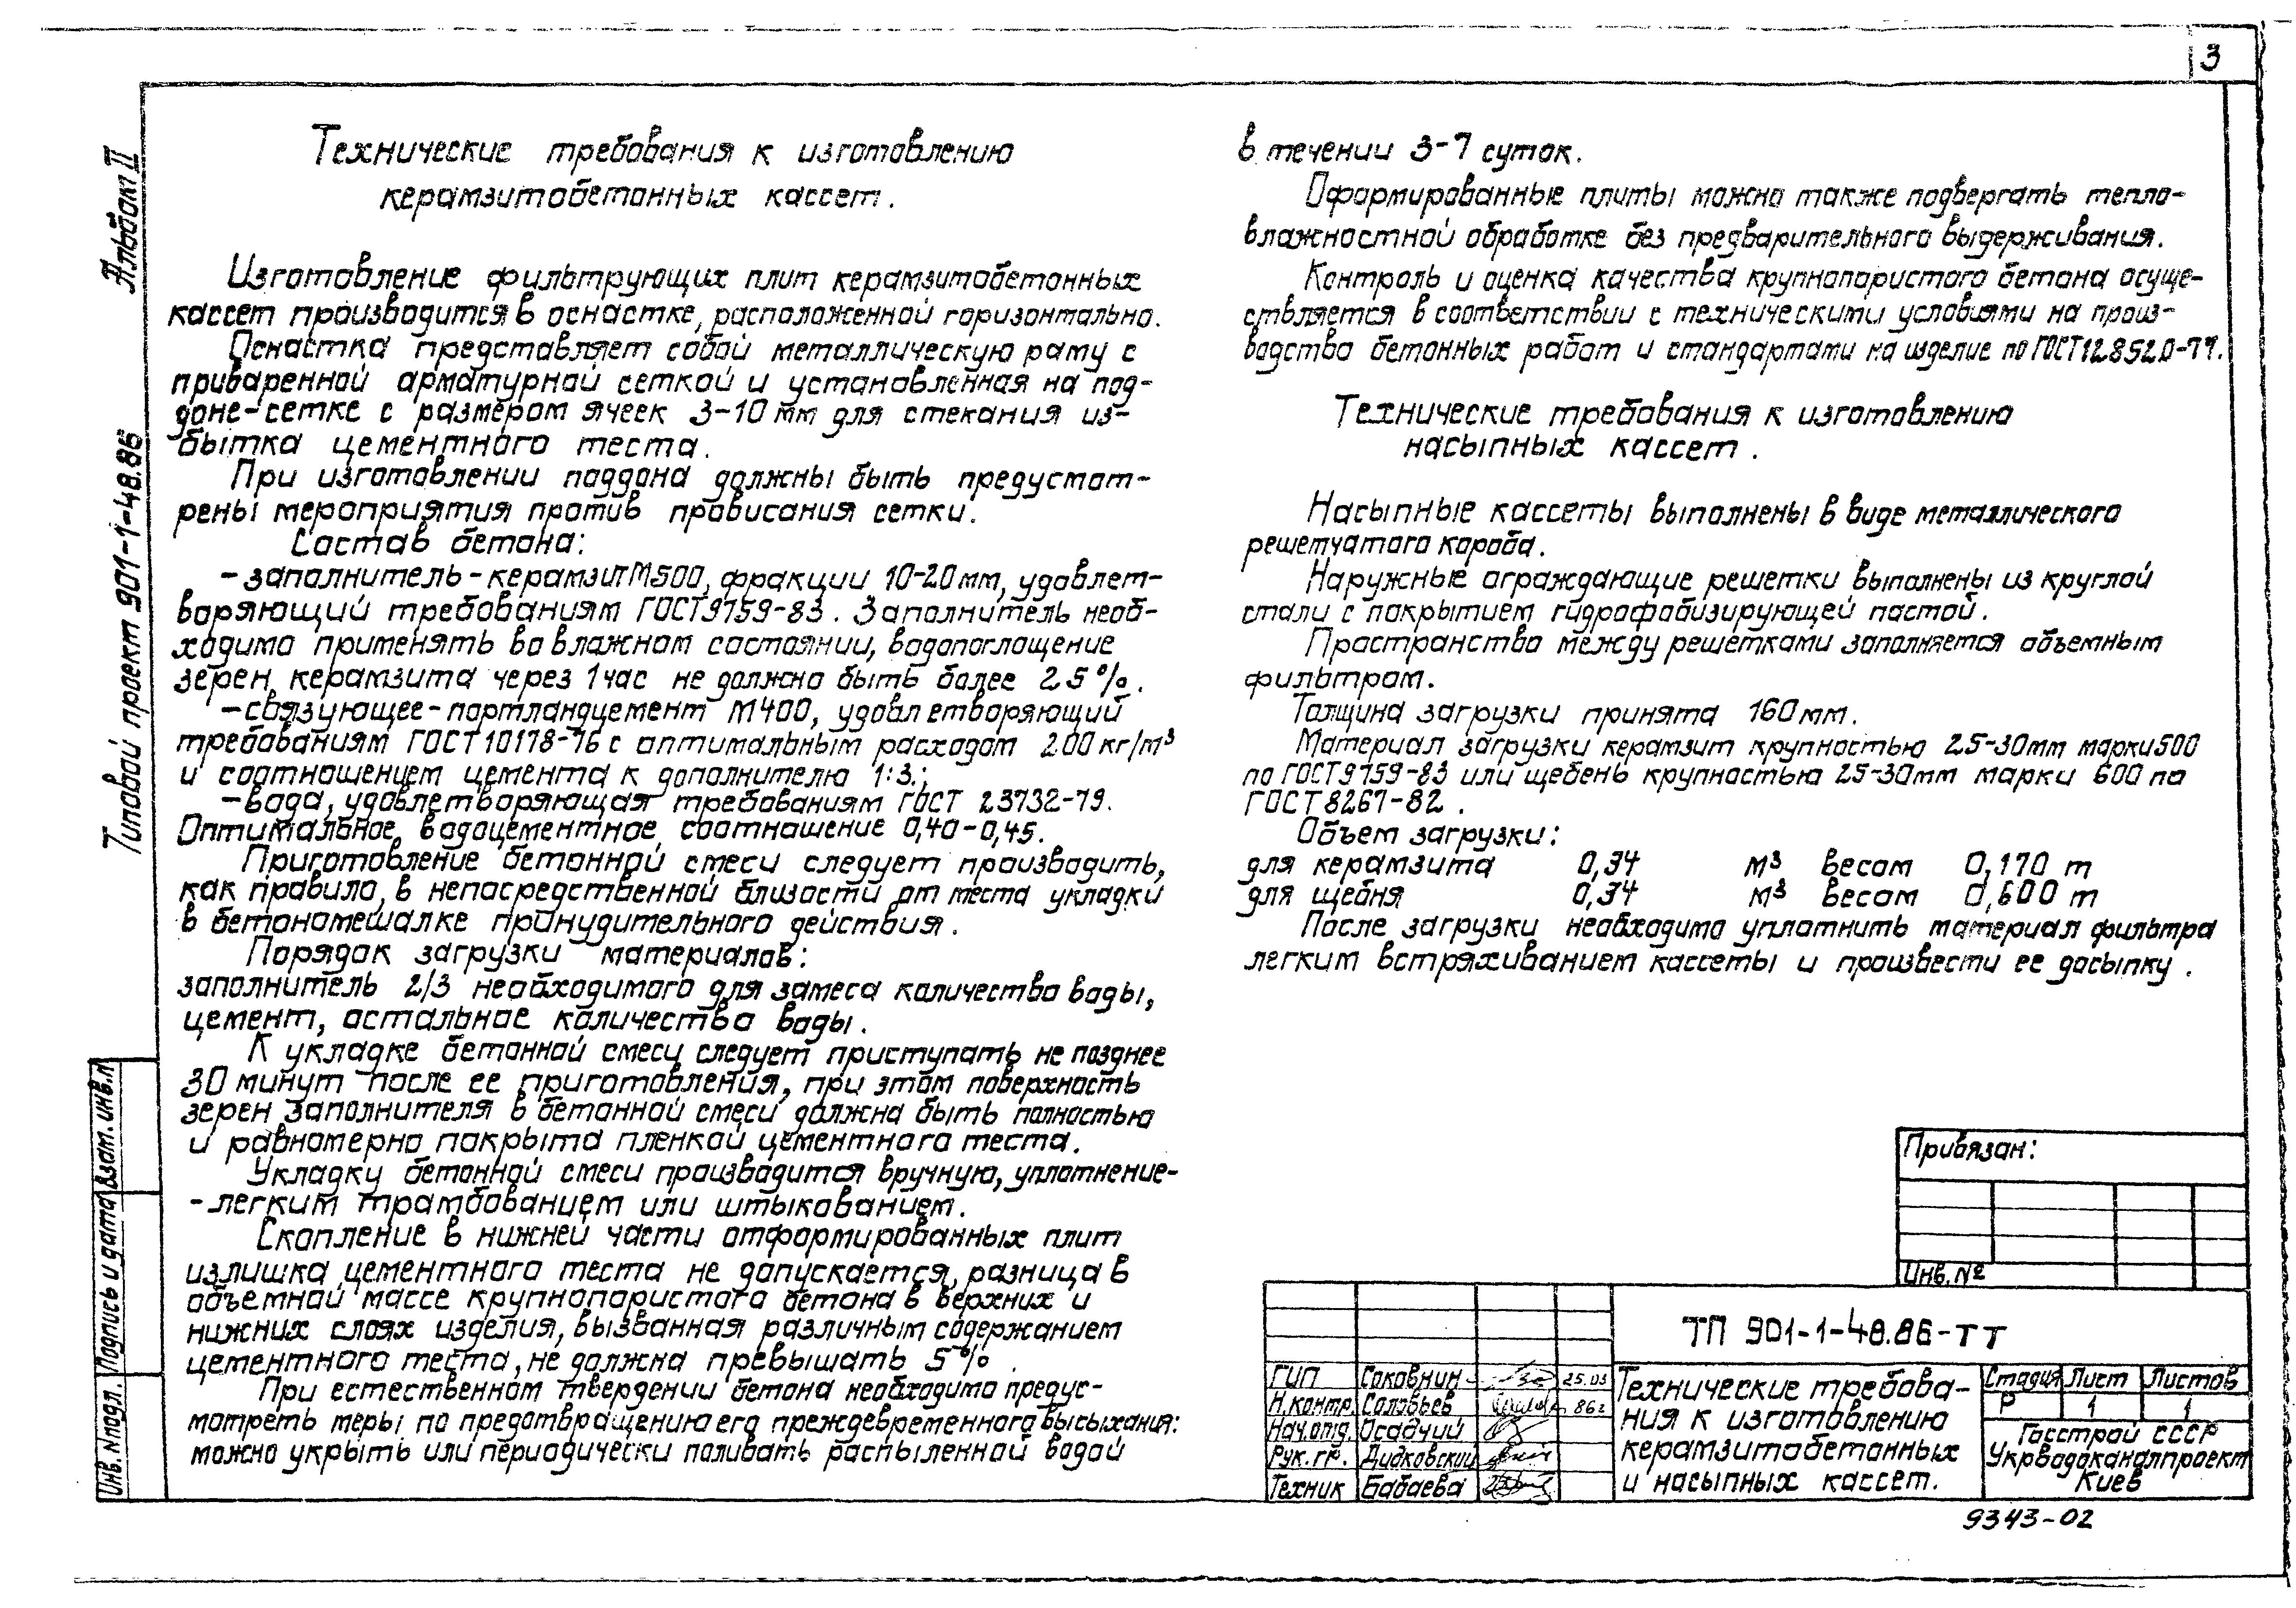 3
Альбом II
Типовой проект 901-1-48.86
Технические требования к изготовлению
керамзитобетонных кассет.
Изготовление фильтрующих плит керамзитобетонных
кассет производится в оснастке, расположенной горизонтально.
Оснастка представляет собой металлическую раму с
приваренной арматурной сеткой и установленная на под-
доне-сетке с размером ячеек 3-10 мм для стекания из-
бытка цементного теста.
При изготовлении поддона должны быть предусмот-
рены мероприятия против провисания сетки.
Состав бетона:
-заполнитель-керамзит М500, фракции 10-20мм, удовлет-
воряющий требованиям ГОСТ 9759-83. Заполнитель необ-
ходимо применять во влажном состоянии, водопоглощение
зерен керамзита через 1 час не должно быть более 25%.
-связующее-портландцемент М400, удовлетворяющий
требованиям ГОСТ 10178-76 с оптимальным расходом 200 кг/м³
и соотношением цемента к дополнителю 1:3.;
-вода, удовлетворяющая требованиям ГОСТ 23732-79.
Оптимальное водоцементное соотношение 0,40-0,45.
Приготовление бетонной смеси следует производить,
как правило, в непосредственной близости от места укладки
в бетономешалке принудительного действия.
Порядок загрузки материалов:
заполнитель 2/3 необходимого для замеса количества воды,
цемент, остальное количество воды.
К укладке бетонной смеси следует приступать не позднее
30 минут после ее приготовления, при этом поверхность
зерен заполнителя в бетонной смеси должна быть полностью
и равномерно покрыта пленкой цементного теста.
Укладку бетонной смеси производится вручную, уплотнение-
-легким трамбованием или штыкованием.
Скопление в нижней части отформированных плит
излишка цементного теста не допускается, разница в
объемной массе крупнопористого бетона в верхних и
нижних слоях изделия, вызванная различным содержанием
цементного теста, не должна превышать 5%.
При естественном твердении бетона необходимо предус-
мотреть меры по предотвращению его преждевременного высыхания:
можно укрыть или периодически поливать распыленной водой
в течении 3-7 суток.
Оформированные плиты можно также подвергать тепло-
влажностной обработке без предварительного выдерживания.
Контроль и оценка качества крупнопористого бетона осуще-
ствляется в соответствии с техническими условиями на произ-
водство бетонных работ и стандартами на изделие по ГОСТ 12.852.0-77.
Технические требования к изготовлению
насыпных кассет.
Насыпные кассеты выполнены в виде металлического
решетчатого короба.
Наружные ограждающие решетки выполнены из круглой
стали с покрытием гидрофобизирующей пастой.
Пространство между решетками заполняется объемным
фильтром.
Толщина загрузки принята 160мм.
Материал загрузки керамзит крупностью 25-30мм марки 500
по ГОСТ 9759-83 или щебень крупностью 25-30мм марки 600 по
ГОСТ 8267-82.
Объем загрузки:
для керамзита 0,34 м³ весом 0,170 т
для щебня 0,34 м³ весом 0,600 т
После загрузки необходимо уплотнить материал фильтра
легким встряхиванием кассеты и произвести ее досыпку.
Привязан:
Инв. №
ТП 901-1-48.86-ТТ
ГИП Соковнин 25.03
Н.контр. Соловьев 86г
Нач.отд. Осадчий
Рук.гр. Дидковский
Техник Бабаева
Технические требова-
ния к изготовлению
керамзитобетонных
и насыпных кассет.
Стадия Лист Листов
Р 1 1
Госстрой СССР
Укрводоканалпроект
Киев
Взам. инв. №
Подпись и дата
Инв. № подл.
9343-02